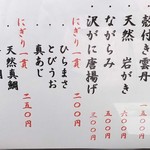 殻付き雲丹 一五〇〇円
・天然 岩がき 六〇〇円
・ながらみ 五〇〇円
・沢がに唐揚げ 三〇〇円
にぎり一貫 二五〇円
・ひらまさ
・とびうお
・真あじ
にぎり一貫 二〇〇円
・天然真鯛